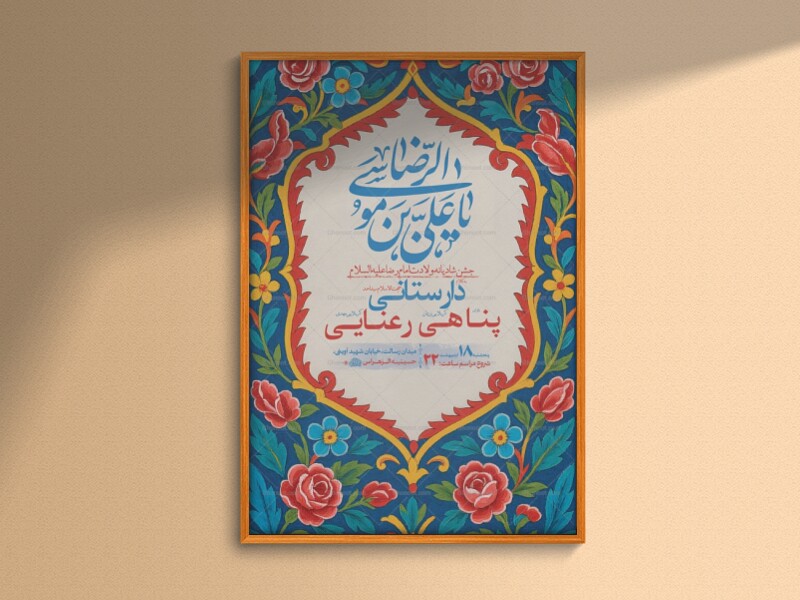 یا علی بن موسی الرضا
جشن شادیانه ولادت امام رضا علیه السلام
دارستانی
پناهی رعنایی
۱۸
میدان رسالت، خیابان شهید
شروع مراسم ساعت: ۲۲
حسینیه الزهرا س